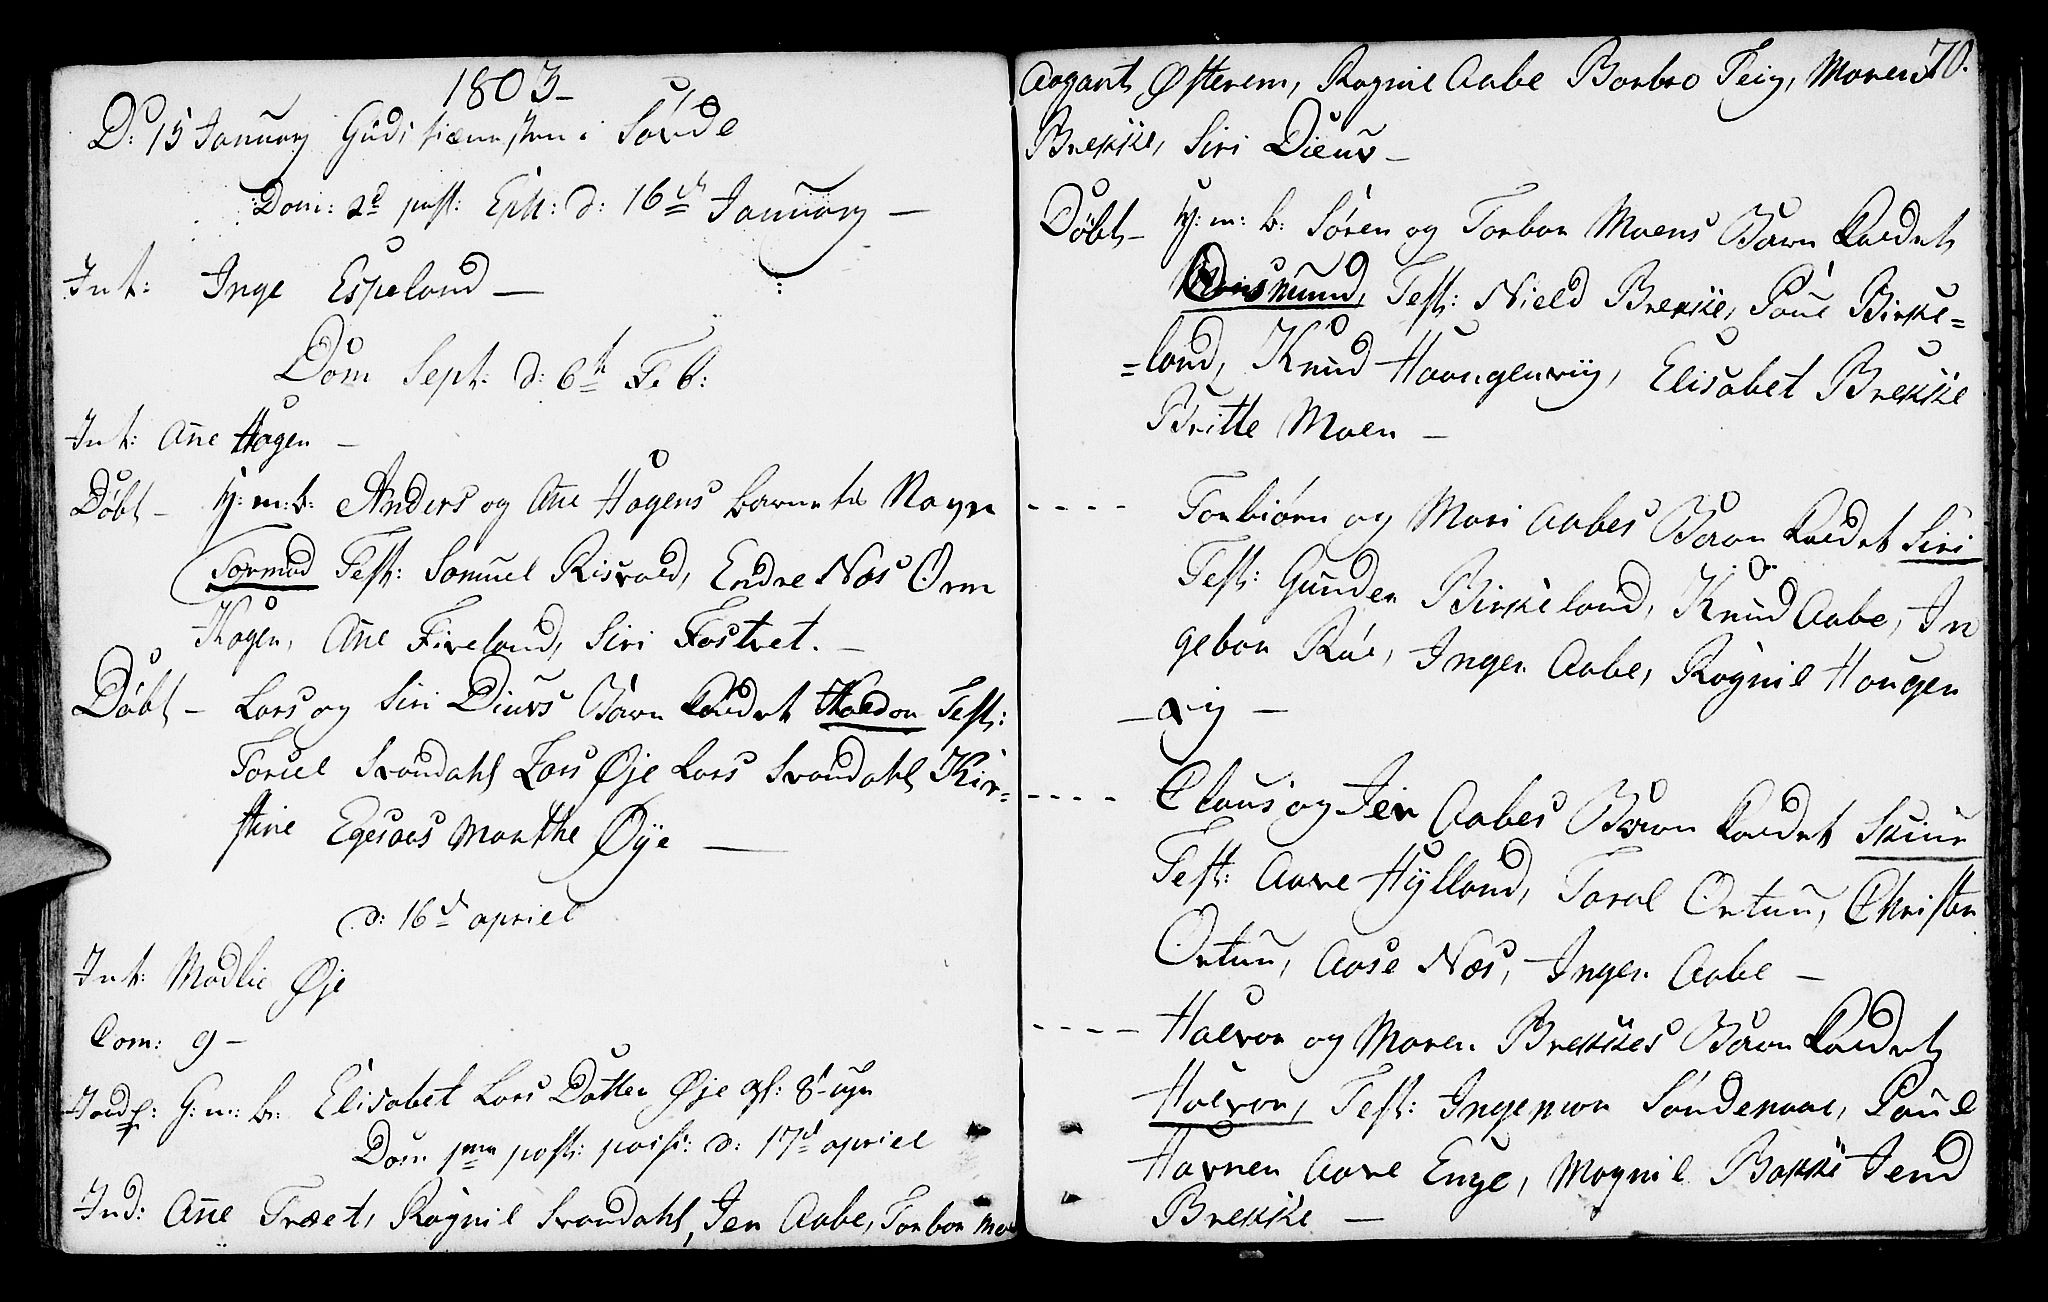 1803–
D: 15 January Guds tieneste i Søvde
Dom: 2d post: Eph: d: 16de January –
Int: Inge Espeland –
Dom Sept: d: 6te Feb:
Int: Añe Hagen –
Døbt – H: m: b: Anders og Añe Hagens
Tormod Test: Samuel Risvold, Endre Næs Orm
Hagen, Añe Fireland, Siri Fostvet. –
Døbt – Lars og Siri Diuvs Barn kaldet Haldor Test:
Toriel Svandahl Lars Øje Lars Svandahl Kir=
stine Egesaes Marthe Øÿe –
d: 16de apriel
Int: Madlie Øje
Com: 9 –
G: m: b: Elisabet Lars Datter Øje
Dom post: d: 17de apriel
Ind: Añe Træet, Ragnil Svandahl, Jen Aabe, Torbor
Østerem, Ragnil Aabe Barbro Teig, Maren 70.
Brekke, Siri Diuv –
Døbt – H: m: b: Søren og Torbor Moens Barn kaldet
Test: Niels Brekke, Poul Birke=
=land, Knud Haongenvig, Elisabet Brekke
Britte Moen –
- - - - Torbiørn og Mari Aabes Barn kaldet Siri
Test: Gunder Birkeland, Knud Aabe, In
gebor Roe, Inger Aabe, Ragnil Hougen
– vig –
- - - - Claus og Jen Aabes Barn kaldet
Test: Aave Hÿlland, Taral Ortun, Christen
Ortun, Aase Næs, Inger Aabe –
- - - - Halvor og Maren Brekkes Barn kaldet
Halvor, Test: Søndenaae, Poul
Havnen Aave Enge, Magnil Bakke
Brekke –